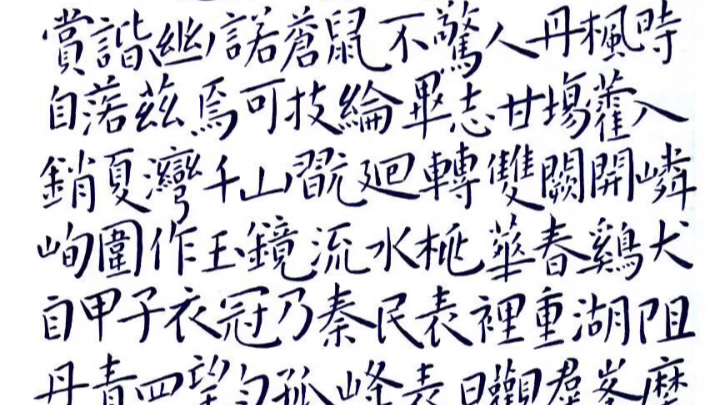 賞諧幽諾蒼鼠不驚人丹楓時
自落茲焉可投綸畢志甘場藿入
銷夏灣千山翫廻轉雙闕開嶙
峋圍作玉鏡流水桃華春鷄犬
自甲子衣冠乃秦民表裡重湖阻
丹青四望勻孤峰表日觀羣峯